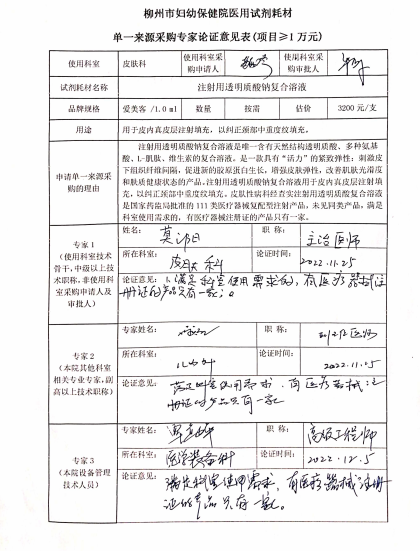 柳州市妇幼保健院医用试剂耗材
单一来源采购专家论证意见表(项目≥1万元)
使用科室 皮肤科 使用科室采购申请人 使用科室采购审批人
试剂耗材名称 注射用透明质酸钠复合溶液
品牌规格 爱美客/1.0ml 数量 按需 估价 3200元/支
用途 用于皮内真皮层注射填充，以纠正颈部中重度皱纹。
申请单一来源采购的理由
注射用透明质酸钠复合溶液是唯一含有天然结构透明质酸、多种氨基
酸、L-肌肽、维生素的复合溶液。是一款具有“活力”的紧致弹性；刺激皮
下组织纤维间隔，促进新的胶原蛋白生长，增强皮肤弹性，改善肌肤光滑度
和肤质健康状态的产品。注射用透明质酸钠复合溶液用于皮内真皮层注射填
充，以纠正颈部中重度皱纹。皮肤性病科经查实注射用透明质酸复合溶液
是国家药监局批准的111类医疗器械复配型注射产品，未见同类产品，满足
科室使用需求的，有医疗器械注册证的产品只有一家。
专家1
(使用科室技术骨干,中级以上技术职称,非使用科室采购申请人及审批人)
姓名： 职称： 主治医师
所在科室： 皮肤科 论证时间： 2022.11.25
论证意见： 满足科室使用需求的，有医疗器械注
册证的产品只有一家。
专家2
(本院其他科室相关专业专家,副高以上技术职称)
专家姓名： 职称： 副主任医师
所在科室： 论证时间： 2022.11.25
论证意见： 满足科室使用需求，有医疗器械注
册证的产品只有一家
专家3
(本院设备管理技术人员)
专家姓名： 职称： 高级工程师
所在科室： 医学装备科 论证时间： 2022.12.5
论证意见： 满足科室使用需求，有医疗器械注册
证的产品只有一家。